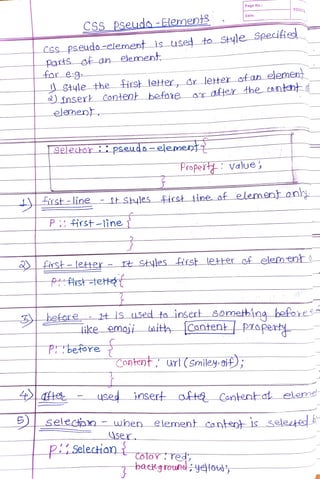 Page No.:
Date:
CSS Pseudo-Elements
CSS pseudo-element is used to style specified
parts of an element.
for e.g.
1) Style the first letter, or letter of an element
2) Insert content before or after the content
element.
selector :: pseudo-element {
Property : value;
}
1) first-line - It styles first line of element only
P :: first-line {
}
2) first-letter - It styles first letter of element
P :: first-letter {
}
3) before - It is used to insert something before
like emoji with Content property
P :: before {
Content : url (smiley.gif);
}
4) after - used insert after content of eleme
5) selection - when element content is selected
User.
P :: selection {
color : red;
background : yellow;
}